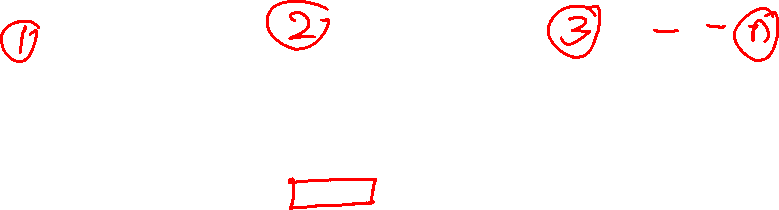 1 2 3 - - n